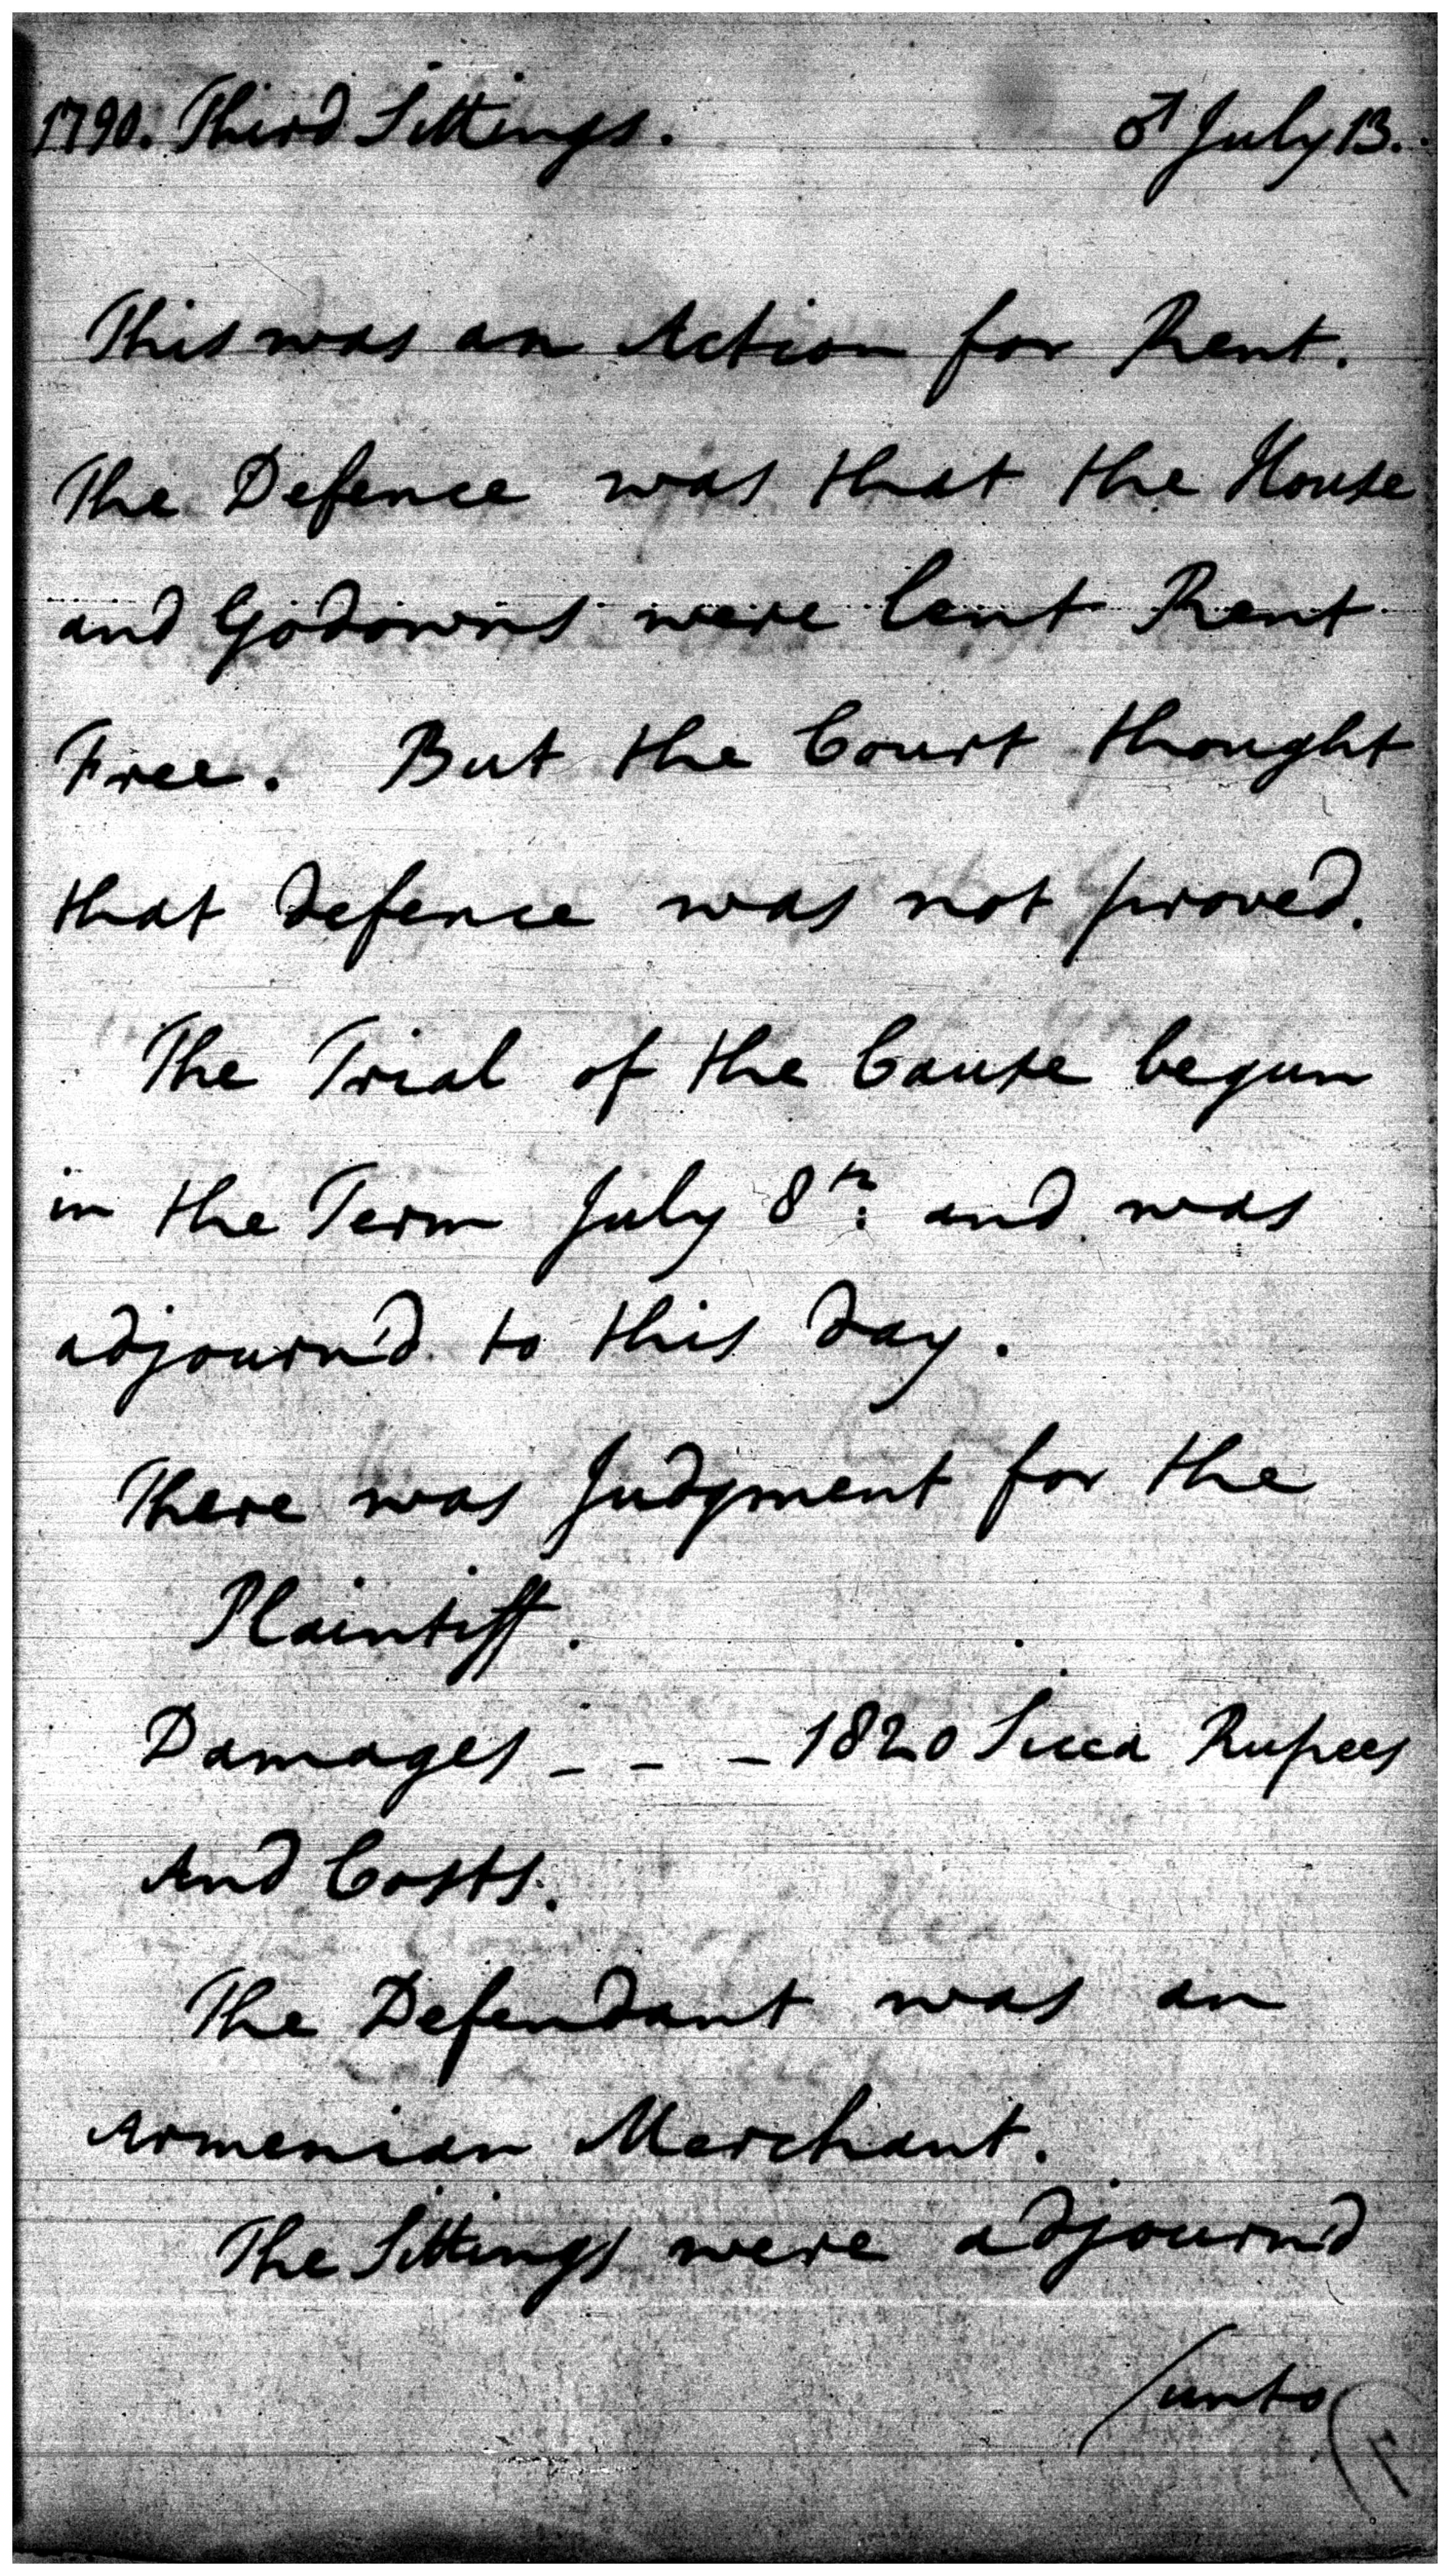 1790. Third Sittings. ♂ July 13.
This was an Action for Rent.
The Defence was that the House
and Godowns were lent Rent
Free. But the Court thought
that defence was not proved.
The Trial of the Cause begun
in the Term July 8th. and was
adjourn'd to this day.
There was Judgment for the
Plaintiff.
Damages _ _ _ 1820 Sicca Rupees
And Costs.
The Defendant was an
Armenian Merchant.
The Sittings were adjourn'd
/unto